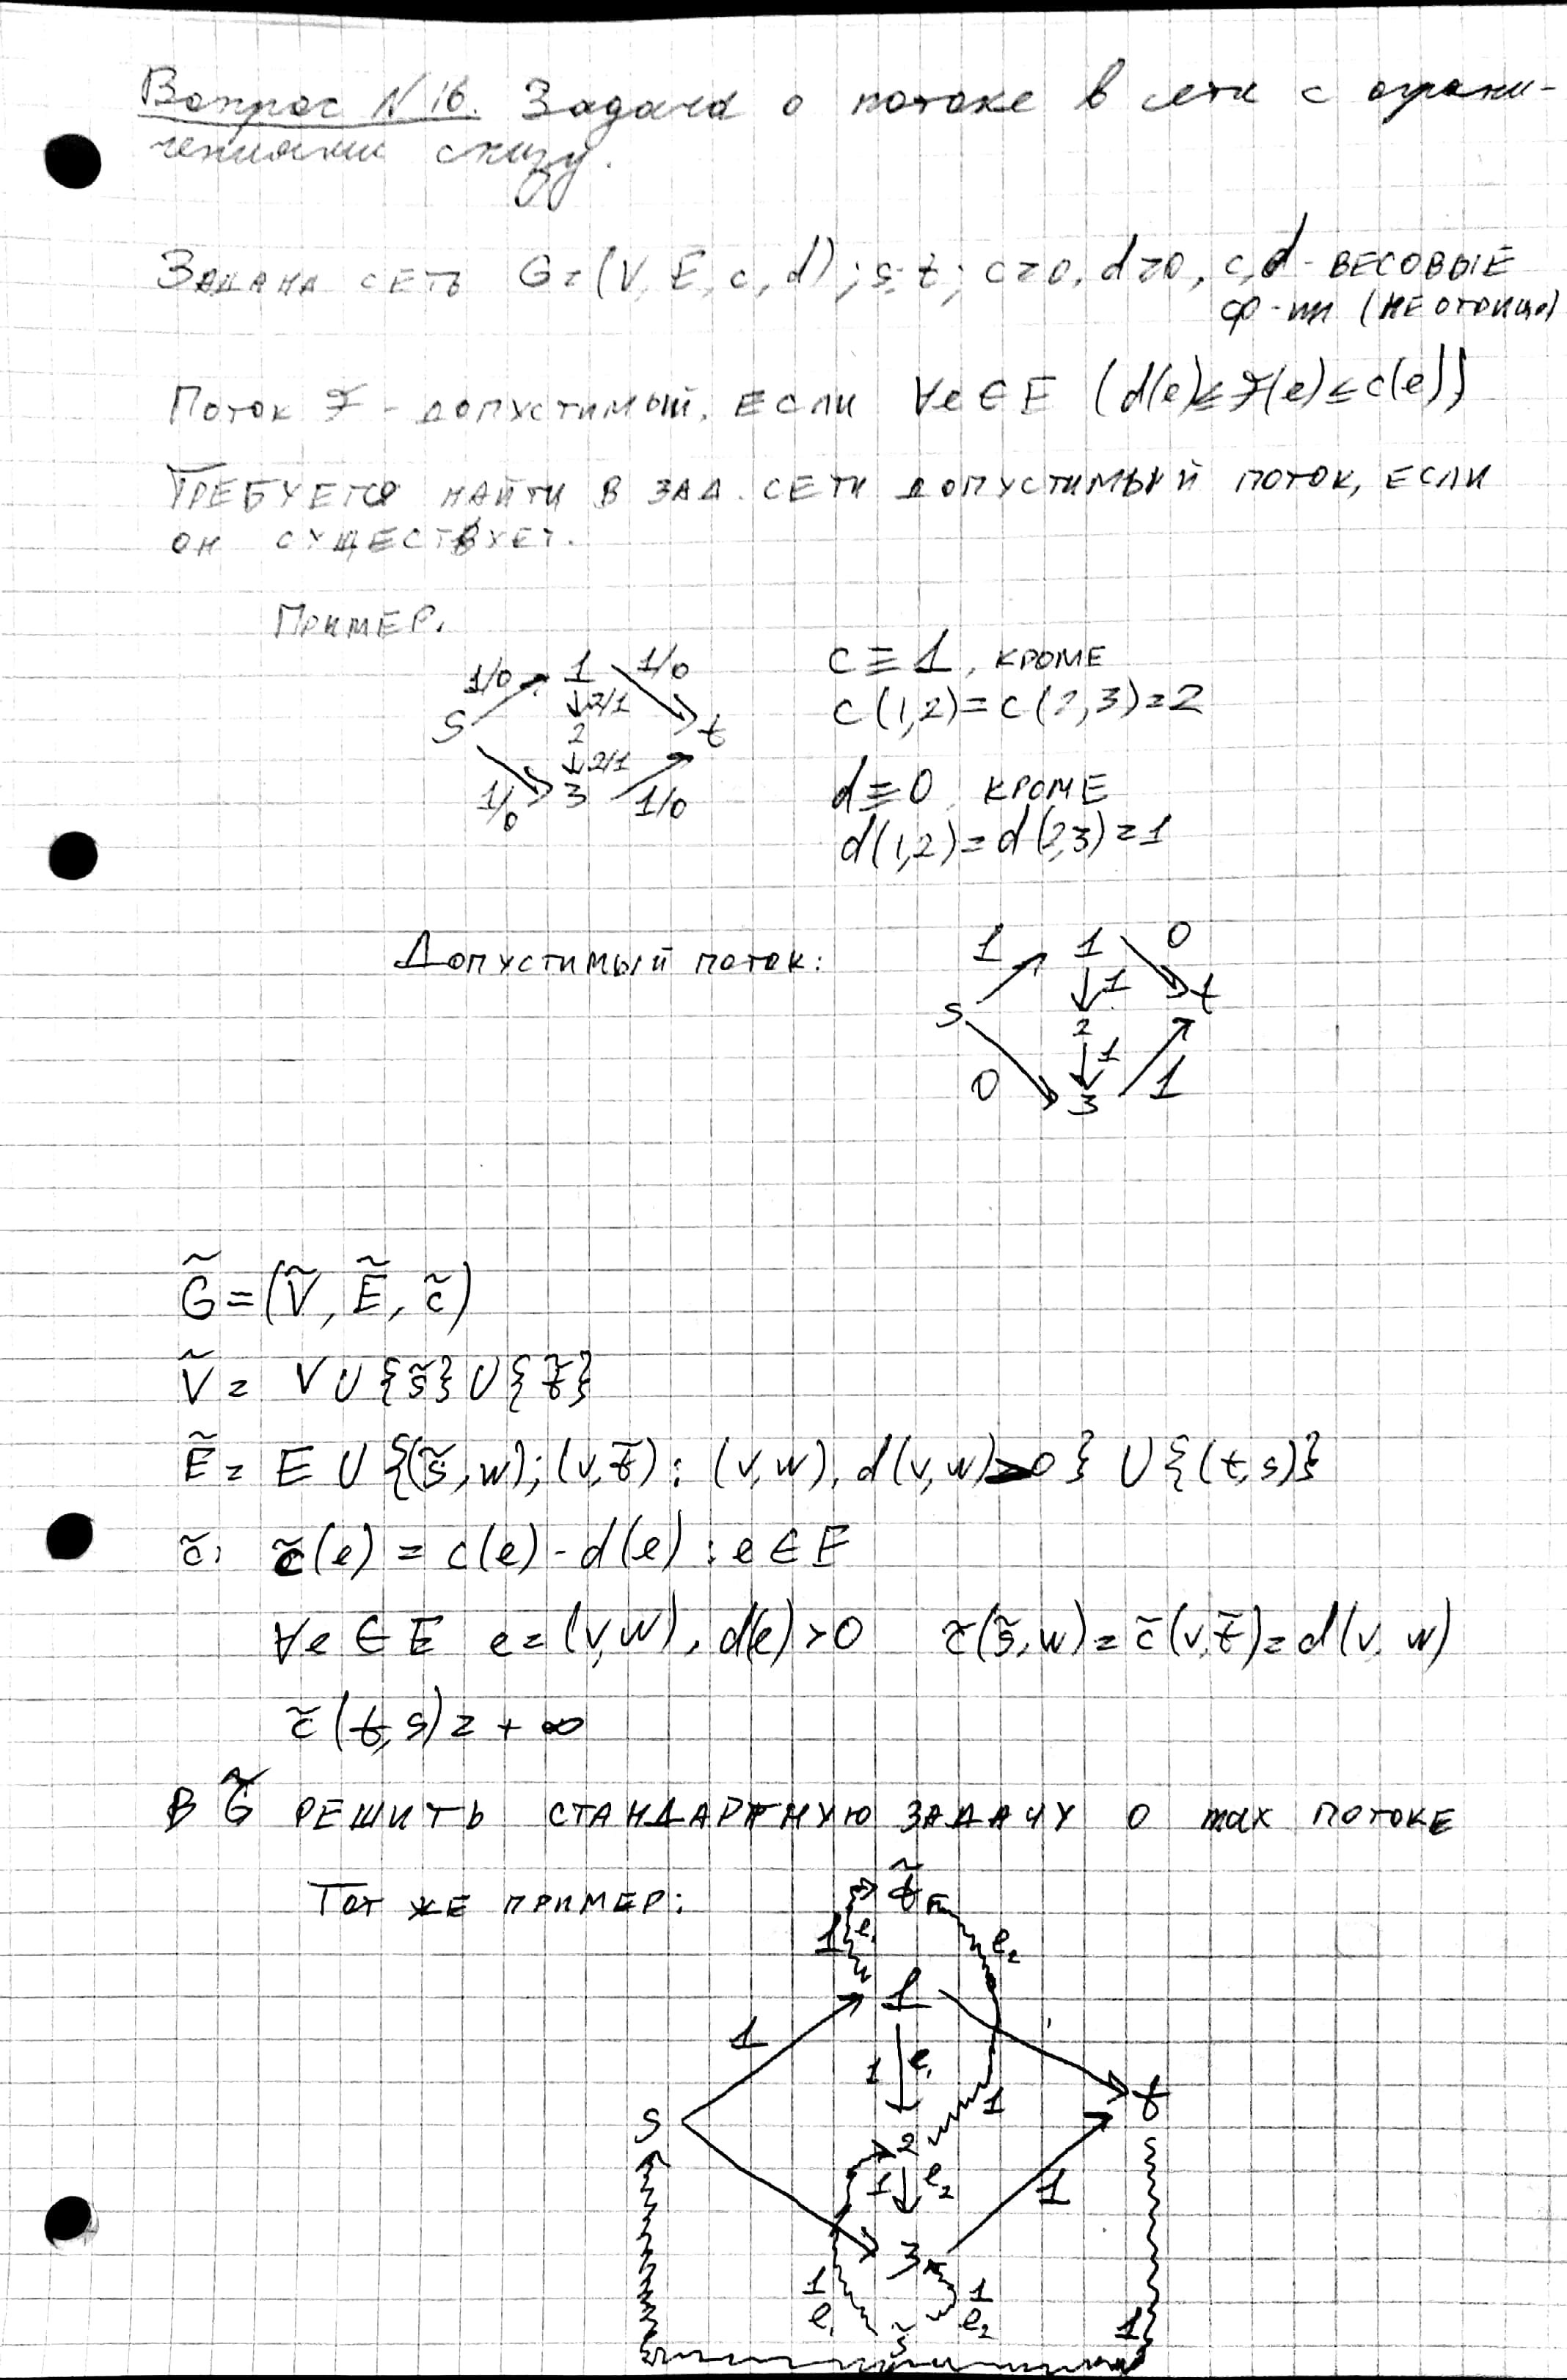 Вопрос N 16. Задача о потоке в сети с ограни-
чениями снизу.
Задана сеть G=(V, E, c, d); s, t; c≥0, d≥0, c, d - весовые
ф-ии (неотриц.)
Поток F - допустимый, если ∀e∈E (d(e)≤F(e)≤c(e))
Требуется найти в зад. сети допустимый поток, если
он существует.
Пример.
1/0 1 1/0
2/1
s 2 t
2/1
1/0 3 1/0
c≡1, кроме
c(1,2)=c(2,3)=2
d≡0, кроме
d(1,2)=d(2,3)=1
Допустимый поток:
1 1 0
1
s 2 t
1
0 3 1
G̃=(Ṽ, Ẽ, c̃)
Ṽ= V∪{s̃}∪{t̃}
Ẽ= E∪{(s̃,w);(v,t̃): (v,w), d(v,w)>0}∪{(t,s)}
c̃: c̃(e) = c(e)-d(e) : e∈E
∀e∈E e=(v,w), d(e)>0 c̃(s̃,w)=c̃(v,t̃)=d(v,w)
c̃(t,s)=+∞
В G̃ решить стандартную задачу о max потоке
Тот же пример:
t̃
1 e₁ e₂
1
1
1 e₁
1
s t
2
1 e₂
1
3
1 1
e₁ e₂
s̃
1